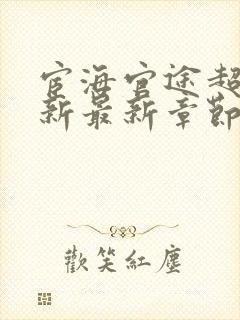 宦海官途超
新最新章節
歡笑紅塵